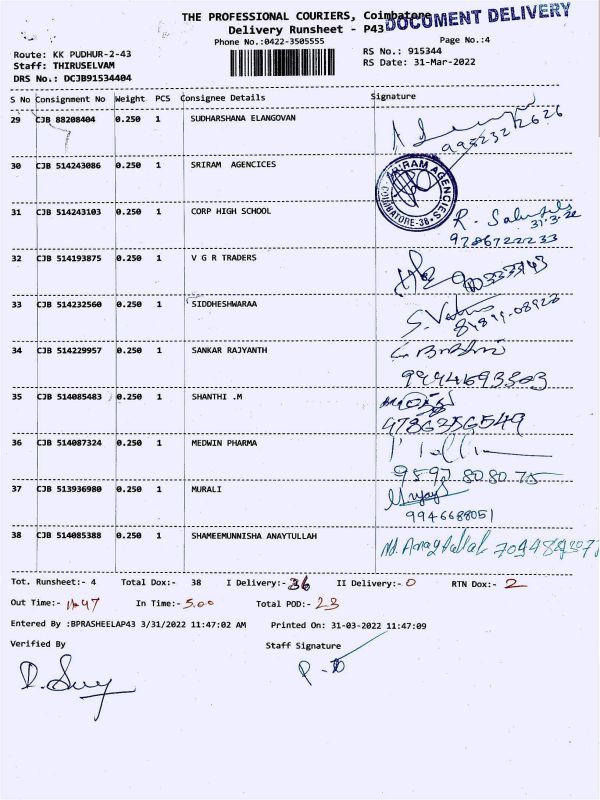 THE PROFESSIONAL COURIERS, Coimbatore
DOCUMENT DELIVERY
Delivery Runsheet - P43
Phone No.:0422-3505555
Page No.:4
Route: KK PUDHUR-2-43
RS No.: 915344
Staff: THIRUSELVAM
RS Date: 31-Mar-2022
DRS No.: DCJB91534404
S No Consignment No Weight PCS Consignee Details Signature
29 CJB 88208404 0.250 1 SUDHARSHANA ELANGOVAN
30 CJB 514243086 0.250 1 SRIRAM AGENCICES
SRIRAM AGENCIES
COIMBATORE-38
31 CJB 514243103 0.250 1 CORP HIGH SCHOOL
31-3-22
9786722233
32 CJB 514193875 0.250 1 V G R TRADERS
33 CJB 514232560 0.250 1 SIDDHESHWARAA
34 CJB 514229957 0.250 1 SANKAR RAJYANTH
9994693303
35 CJB 514085483 0.250 1 SHANTHI .M
9786256549
36 CJB 514087324 0.250 1 MEDWIN PHARMA
9597 808075
37 CJB 513936980 0.250 1 MURALI
9946688051
38 CJB 514085388 0.250 1 SHAMEEMUNNISHA ANAYTULLAH
Tot. Runsheet:- 4 Total Dox:- 38 I Delivery:- 36 II Delivery:- 0 RTN Dox:- 2
Out Time:- 11.47 In Time:- 5.00 Total POD:- 23
Entered By :BPRASHEELAP43 3/31/2022 11:47:02 AM Printed On: 31-03-2022 11:47:09
Verified By Staff Signature